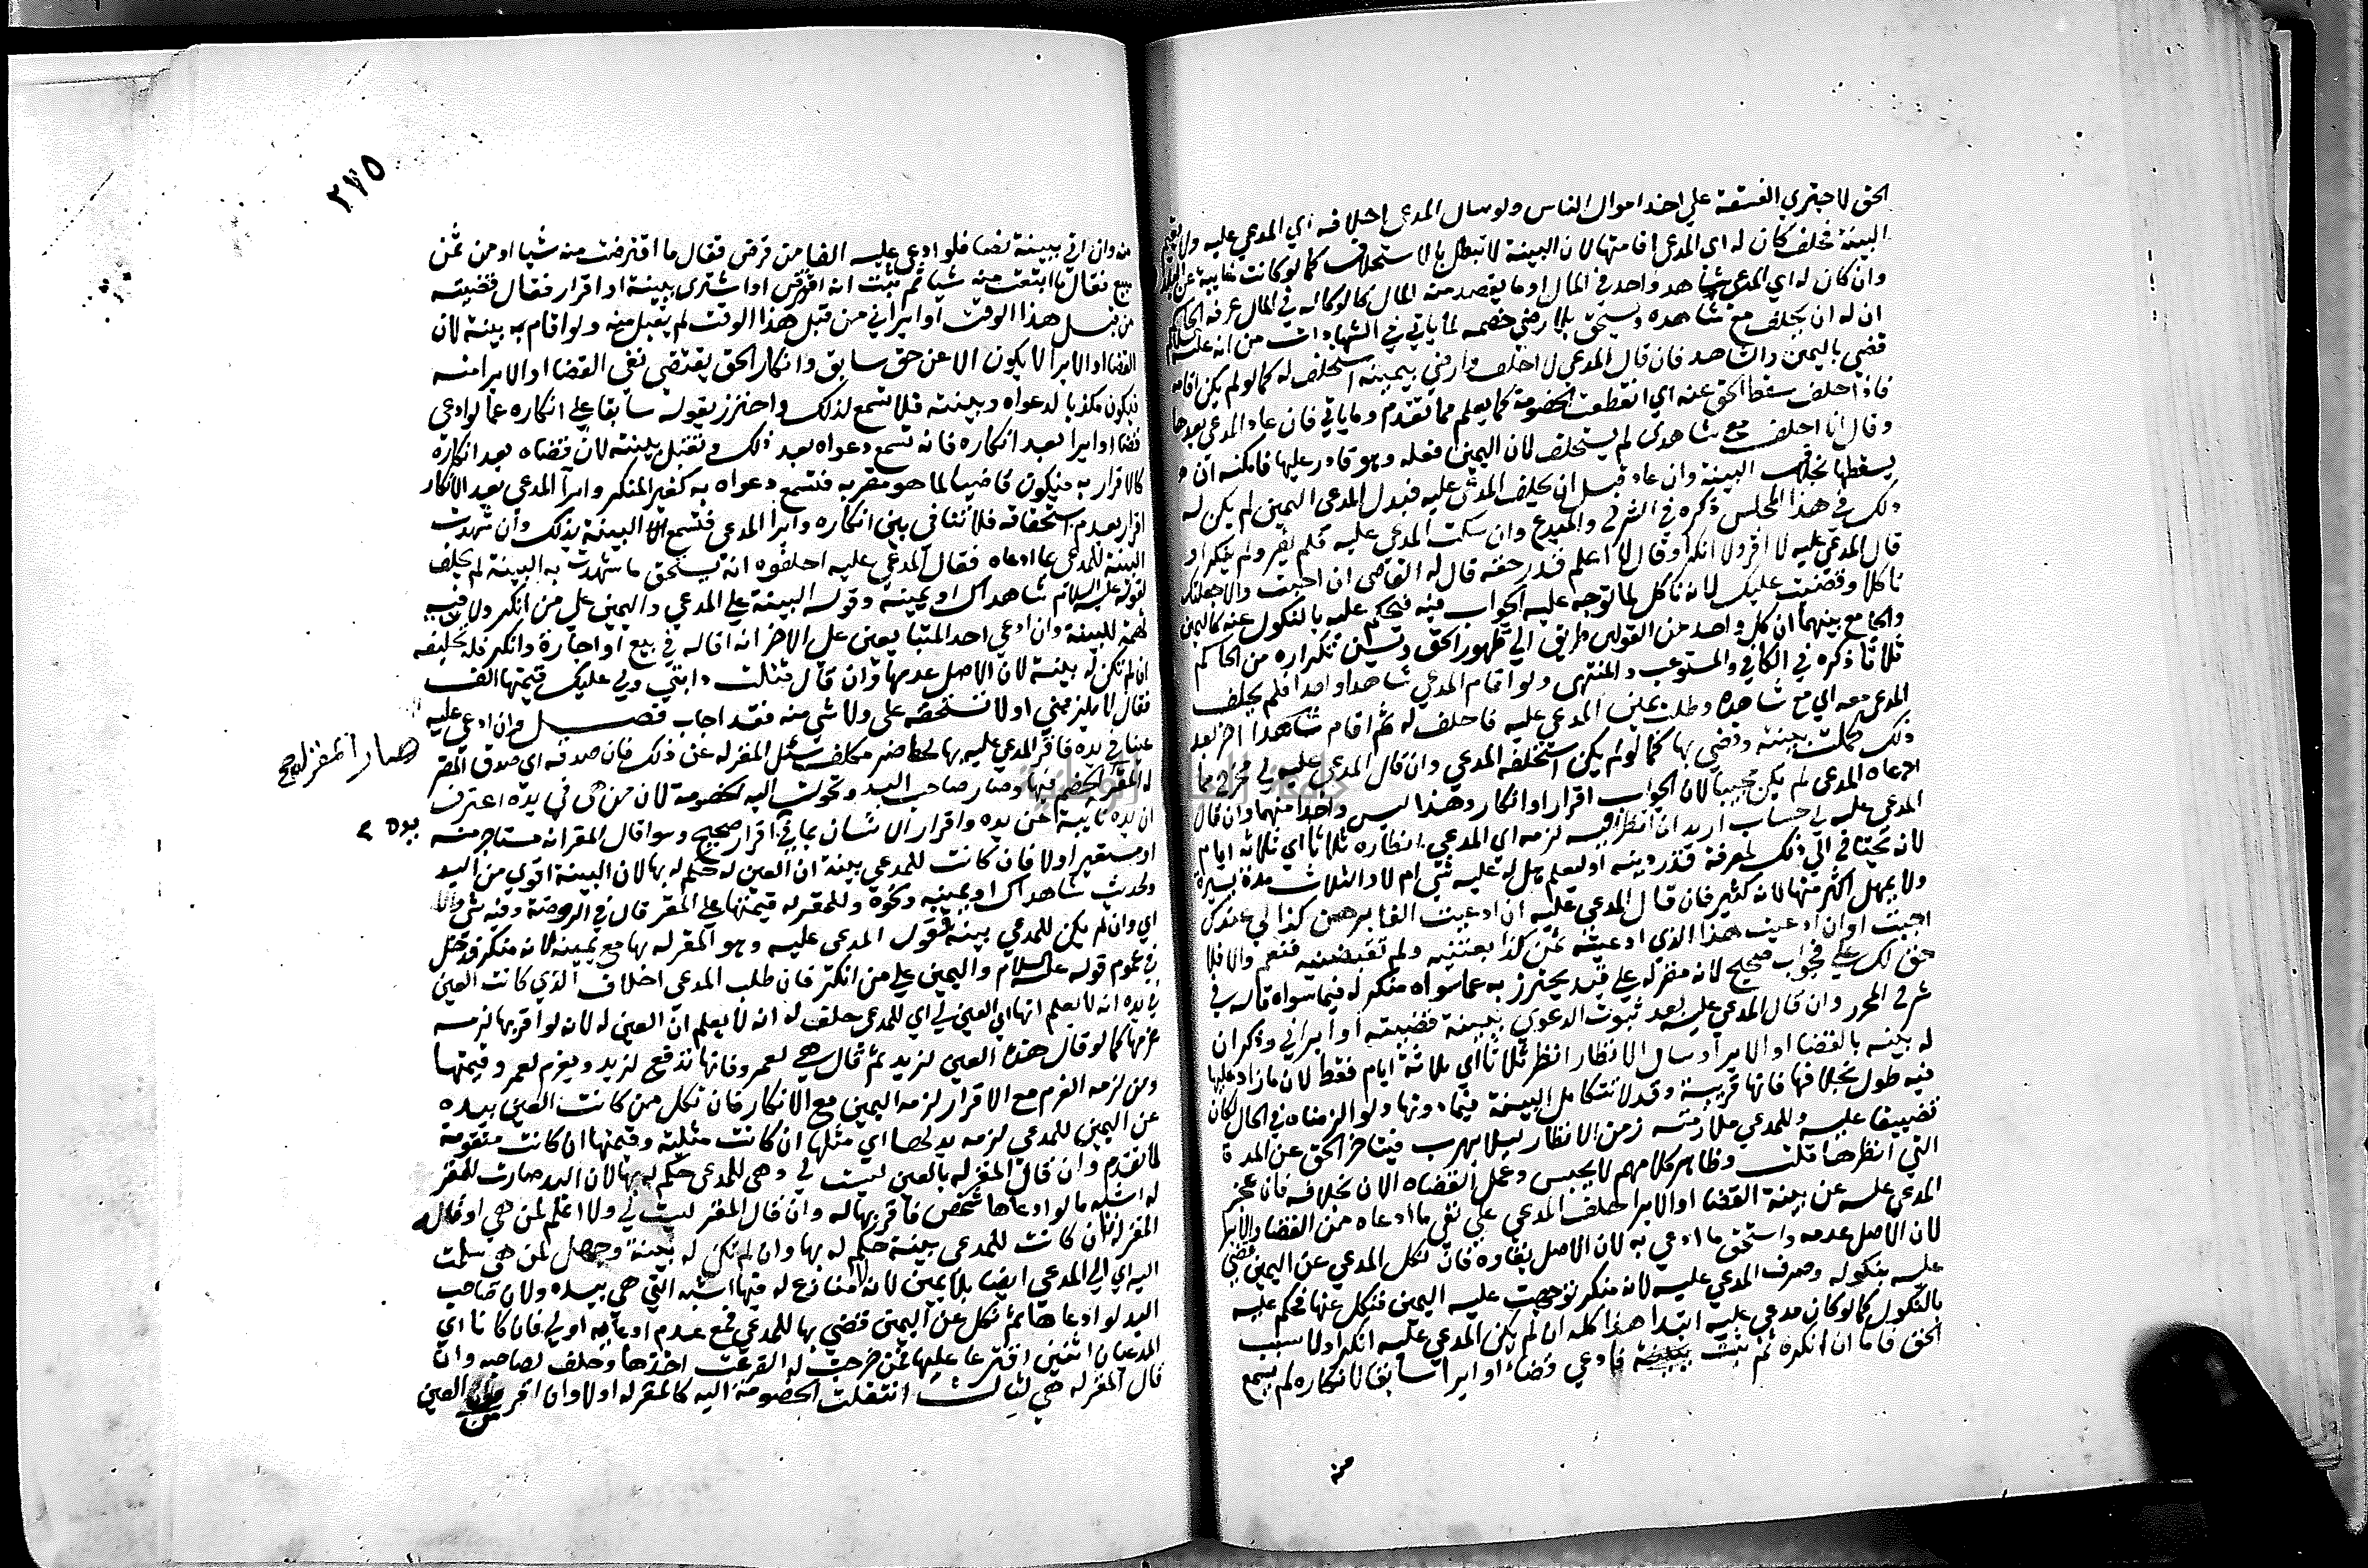 الحق لاجترئ الفسقة علي اخذ اموال الناس ولو سال المدعي احلافه اي المدعي عليه ولا يقيم
البينة فحلف كان له اي المدعي اقامتها لان البينة لا تبطل بالاستحلاف كما لو كانت غايبة عن البلد
وان كان له اي المدعي شاهد واحد في المال او ما يقصد منه المال كالوكالة في المال عرفه الحاكم
ان له ان يحلف مع شاهده ويستحق بلا رضي خصمه لما ياتي في الشهادات من انه عليه السلام
قضي باليمين والشاهد فان قال المدعي لا احلف وارضي بيمينه استحلف له كما لو لم يكن اقامه
فاذا حلف سقط الحق عنه اي انقطعت الخصومة كما يعلم مما تقدم وما ياتي فان عاد المدعي بعدها
وقال انا احلف مع شاهدي لم يستحلف لان اليمين فعله وهو قادر عليها فامكنه ان
يسقطها بخلاف البينة وان عاد قبل ان يحلف المدعي عليه فبذل المدعي اليمين لم يكن له
ذلك في هذا المجلس ذكره في الشرح والمبدع وان سكت المدعي عليه فلم يقر ولم ينكر او
قال المدعي عليه لا اقر ولا انكر او قال لا اعلم قدر حقه قال له القاضي ان اجبت والا جعلتك
ناكلا وقضيت عليك لانه ناكل لما توجه عليه الجواب فيه فيحكم عليه بالنكول عنه كاليمين
والجامع بينهما ان كل واحد من القولين طريق الي ظهور الحق ويسن تكراره من الحاكم
ثلاثا ذكره في الكافي والمستوعب والمنتهي ولو اقام المدعي شاهدا واحدا فلم يحلف
المدعي معه اي مع شاهده وطلب يمين المدعي عليه فاحلف له ثم اقام شاهدا اخر بعد
ذلك كملت بينته وقضي بها كما لو لم يكن استحلفه المدعي وان قال المدعي عليه لي مخرج مما
ادعاه المدعي لم يكن مجيبا لان الجواب اقرار او انكار وهذا ليس واحدا منهما وان قال
المدعي عليه لي حساب اريد ان انظر فيه لزمه اي المدعي انظاره ثلاثا اي ثلاثة ايام
لانه يحتاج الي ذلك لمعرفة قدر دينه او ليعلم هل له عليه شي ام لا والثلاث مدة يسيرة
ولا يمهل اكثر منها لانه كثير فان قال المدعي عليه ان ادعيت الفا برهن كذا لي عندك
اجبت او ان ادعيت هذا الذي ادعيته ثمن كذا بعتنيه ولم تقبضنيه فنعم والا فلا
حق لك علي فجواب صحيح لانه مقر له علي قيد يحترز به عما سواه منكر له فيما سواه قاله في
شرح المحرر وان قال المدعي عليه بعد ثبوت الدعوي ببينة قضيته او ابراني وذكر ان
له بينة بالقضا او الابرا وسال الانظار انظر ثلاثا اي ثلاثة ايام فقط لان ما زاد عليها
فيه طول بخلافها فانها قريبة وقد لا تتكامل البينة فيما دونها ولو الزمناه في الحال لكان
تضييقا عليه وللمدعي ملازمته زمن الانظار ليلا يهرب فيتاخر الحق عن المدة
التي انظرها قلت وظاهر كلامهم لا يحبس وعمل القضاه الان بخلافه فان عجز
المدعي عليه عن بينة القضا او الابرا حلف المدعي علي نفي ما ادعاه من القضا والابرا
لان الاصل عدمه واستحق ما ادعي به لان الاصل بقاوه فان نكل المدعي عن اليمين قضي
عليه بنكوله وصرف المدعي عليه لانه منكر توجهت عليه اليمين فنكل عنها فحكم عليه
بالنكول كما لو كان مدعي عليه ابتدا هذا كله ان لم يكن المدعي عليه انكر اولا سبب
الحق فاما ان انكره ثم ثبت فادعي قضاء او ابرا سابقا لانكاره لم يسمع
منه
٢٧٥
منه وان اتي ببينة نصا فلو ادعي عليه الفا من قرض فقال ما اقترضت منه شيا او من ثمن
مبيع فقال ما ابتعت منه شيا ثم ثبت انه اقترض او اشتري ببينة او اقرار فقال قضيته
من قبل هذا الوقت او ابراني من قبل هذا الوقت لم يقبل منه ولو اقام به بينة لان
القضا او الابرا لا يكون الا عن حق سابق وانكار الحق يقتضي نفي القضا او الابرا منه
فيكون مكذبا لدعواه وبينته فلا تسمع لذلك واحترز بقوله سابقا علي انكاره عما لو ادعي
قضا او ابرا بعد انكاره فانه تسمع دعواه بعد ذلك وتقبل بينته لان قضاه بعد انكاره
كالاقرار به فيكون قاضيا لما هو مقر به فتسمع دعواه به كغير المنكر وابرآ المدعي بعد الانكار
اقرار بعدم استحقاقه فلا تنافي بين انكاره وابرا المدعي فتسمع البينة بذلك وان شهدت
البينة للمدعي بما ادعاه فقال المدعي عليه احلفوه انه يستحق ما شهدت به البينة لم يحلف
لقوله عليه السلام شاهداك او يمينه وقوله البينة علي المدعي واليمين علي من انكر ولا فيه
تهمة للبينة وان ادعي احد المتبايعين علي الاخر انه اقاله في بيع او اجارة وانكر فله تحليفه
ان لم تكن له بينة لان الاصل عدمها وان قال قتلت دابتي ولي عليك قيمتها الف
فقال لا يلزمني او لا تستحقه علي ولا شي منه فقد اجاب فصل وان ادعي عليه
عينا في يده فاقر المدعي عليه بها لحاضر مكلف سئل المقر له عن ذلك فان صدقه اي صدق المقر
له المقر الخصم فيها وصار صاحب اليد وتحولت اليه الخصومة لان من هي في يده اعترف
صار المقر له صح
ان يده نايبة عن يده واقرار الانسان بما في اقرار صحيح وسوا قال المقر انه مستاجر منه
يده ٢
او مستعير او لا فان كانت للمدعي بينة ان العين له حكم له بها لان البينة اقوي من اليد
ولحديث شاهداك او يمينه ونحوه وللمقر له قيمتها علي المقر قال في الروضة وفيه شي والا
اي وان لم يكن للمدعي بينة فقول المدعي عليه وهو المقر له بها مع يمينه لانه منكر فدخل
في عموم قوله عليه السلام واليمين علي من انكر فان طلب المدعي احلاف الذي كانت العين
في يده انه لا يعلم انها اي العين لي اي للمدعي حلف له انه لا يعلم ان العين له لانه لو اقر بها لزمه
غرمها كما لو قال هذه العين لزيد ثم قال هي لعمرو فانها تدفع لزيد ويغرم لعمرو قيمتها
ومن لزمه الغرم مع الاقرار لزمه اليمين مع الانكار فان نكل من كانت العين بيده
عن اليمين للمدعي لزمه بدلها اي مثلها ان كانت مثلية وقيمتها ان كانت متقومة
لما تقدم وان قال المقر له بالعين ليست لي وهي للمدعي حكم له بها لان اليد صارت للمقر
له اشبه ما لو ادعاها شخص فاقر بها له وان قال المقر ليست لي ولا اعلم لمن هي او قاله
المقر له فان كانت للمدعي بينة حكم له بها وان لم تكن له بينة وجهل لمن هي سلمت
اليه اي الي المدعي ايضا بلا يمين لانه لا منازع له فيها اشبه التي هي بيده ولان صاحب
اليد لو ادعاها ثم نكل عن اليمين قضي بها للمدعي فمع عدم ادعايه اولي فان كانا اي
المدعيان اثنين اقترعا عليها فمن خرجت له القرعة اخذها وحلف لصاحبه وان
قال المقر له هي لثالث انتقلت الخصومة اليه كالمقر له اولا وان اقر من العين